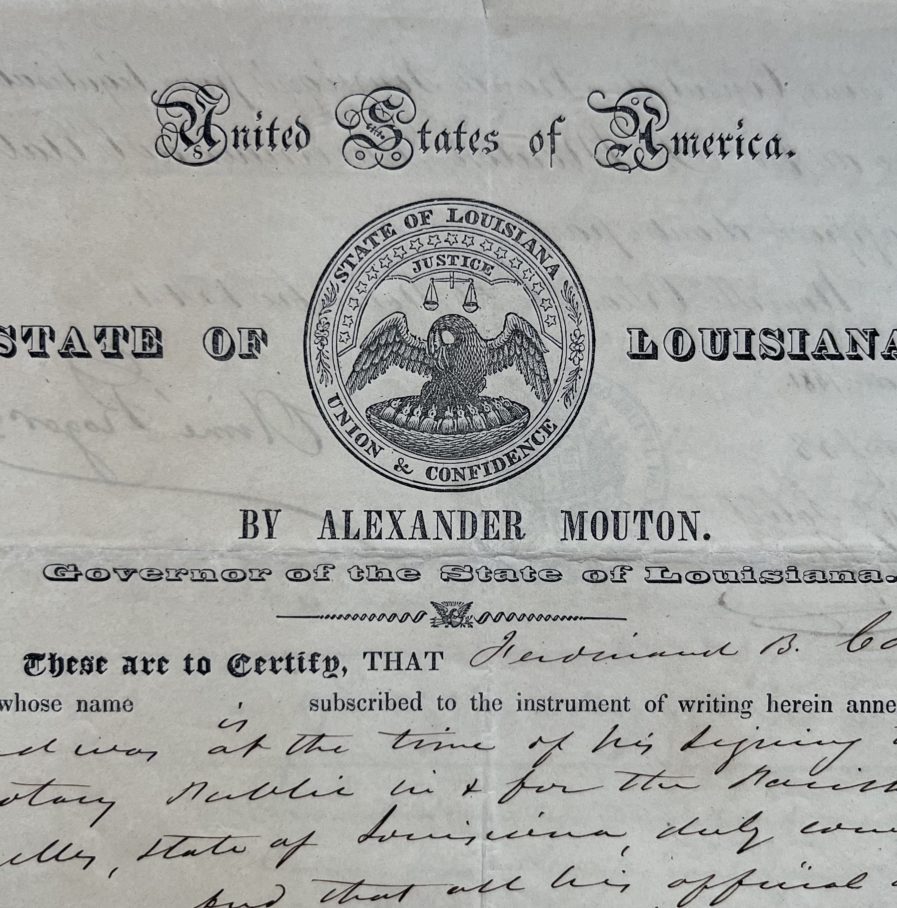 United States of America.
STATE OF LOUISIANA
JUSTICE
STATE OF LOUISIANA
UNION & CONFIDENCE
BY ALEXANDER MOUTON.
Governor of the State of Louisiana.
These are to Certify, THAT Ferdinand B. Co
whose name is subscribed to the instrument of writing herein anne
d was at the time of his signing
otary Public in & for the Parish
elles, State of Louisiana, duly com
and that all his official